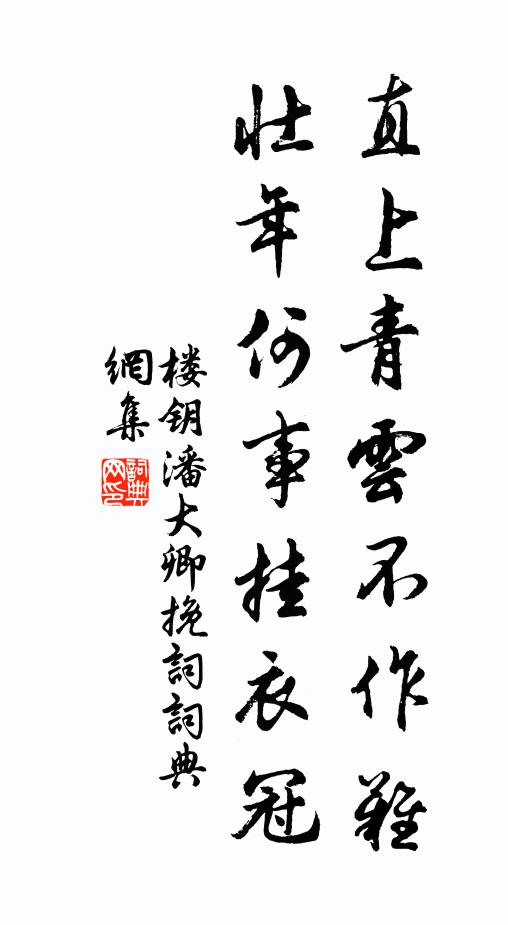 直上青雲不作難
壯年何事挂衣冠
楼钥潘大卿挽詞詞典
網集
詞典网印